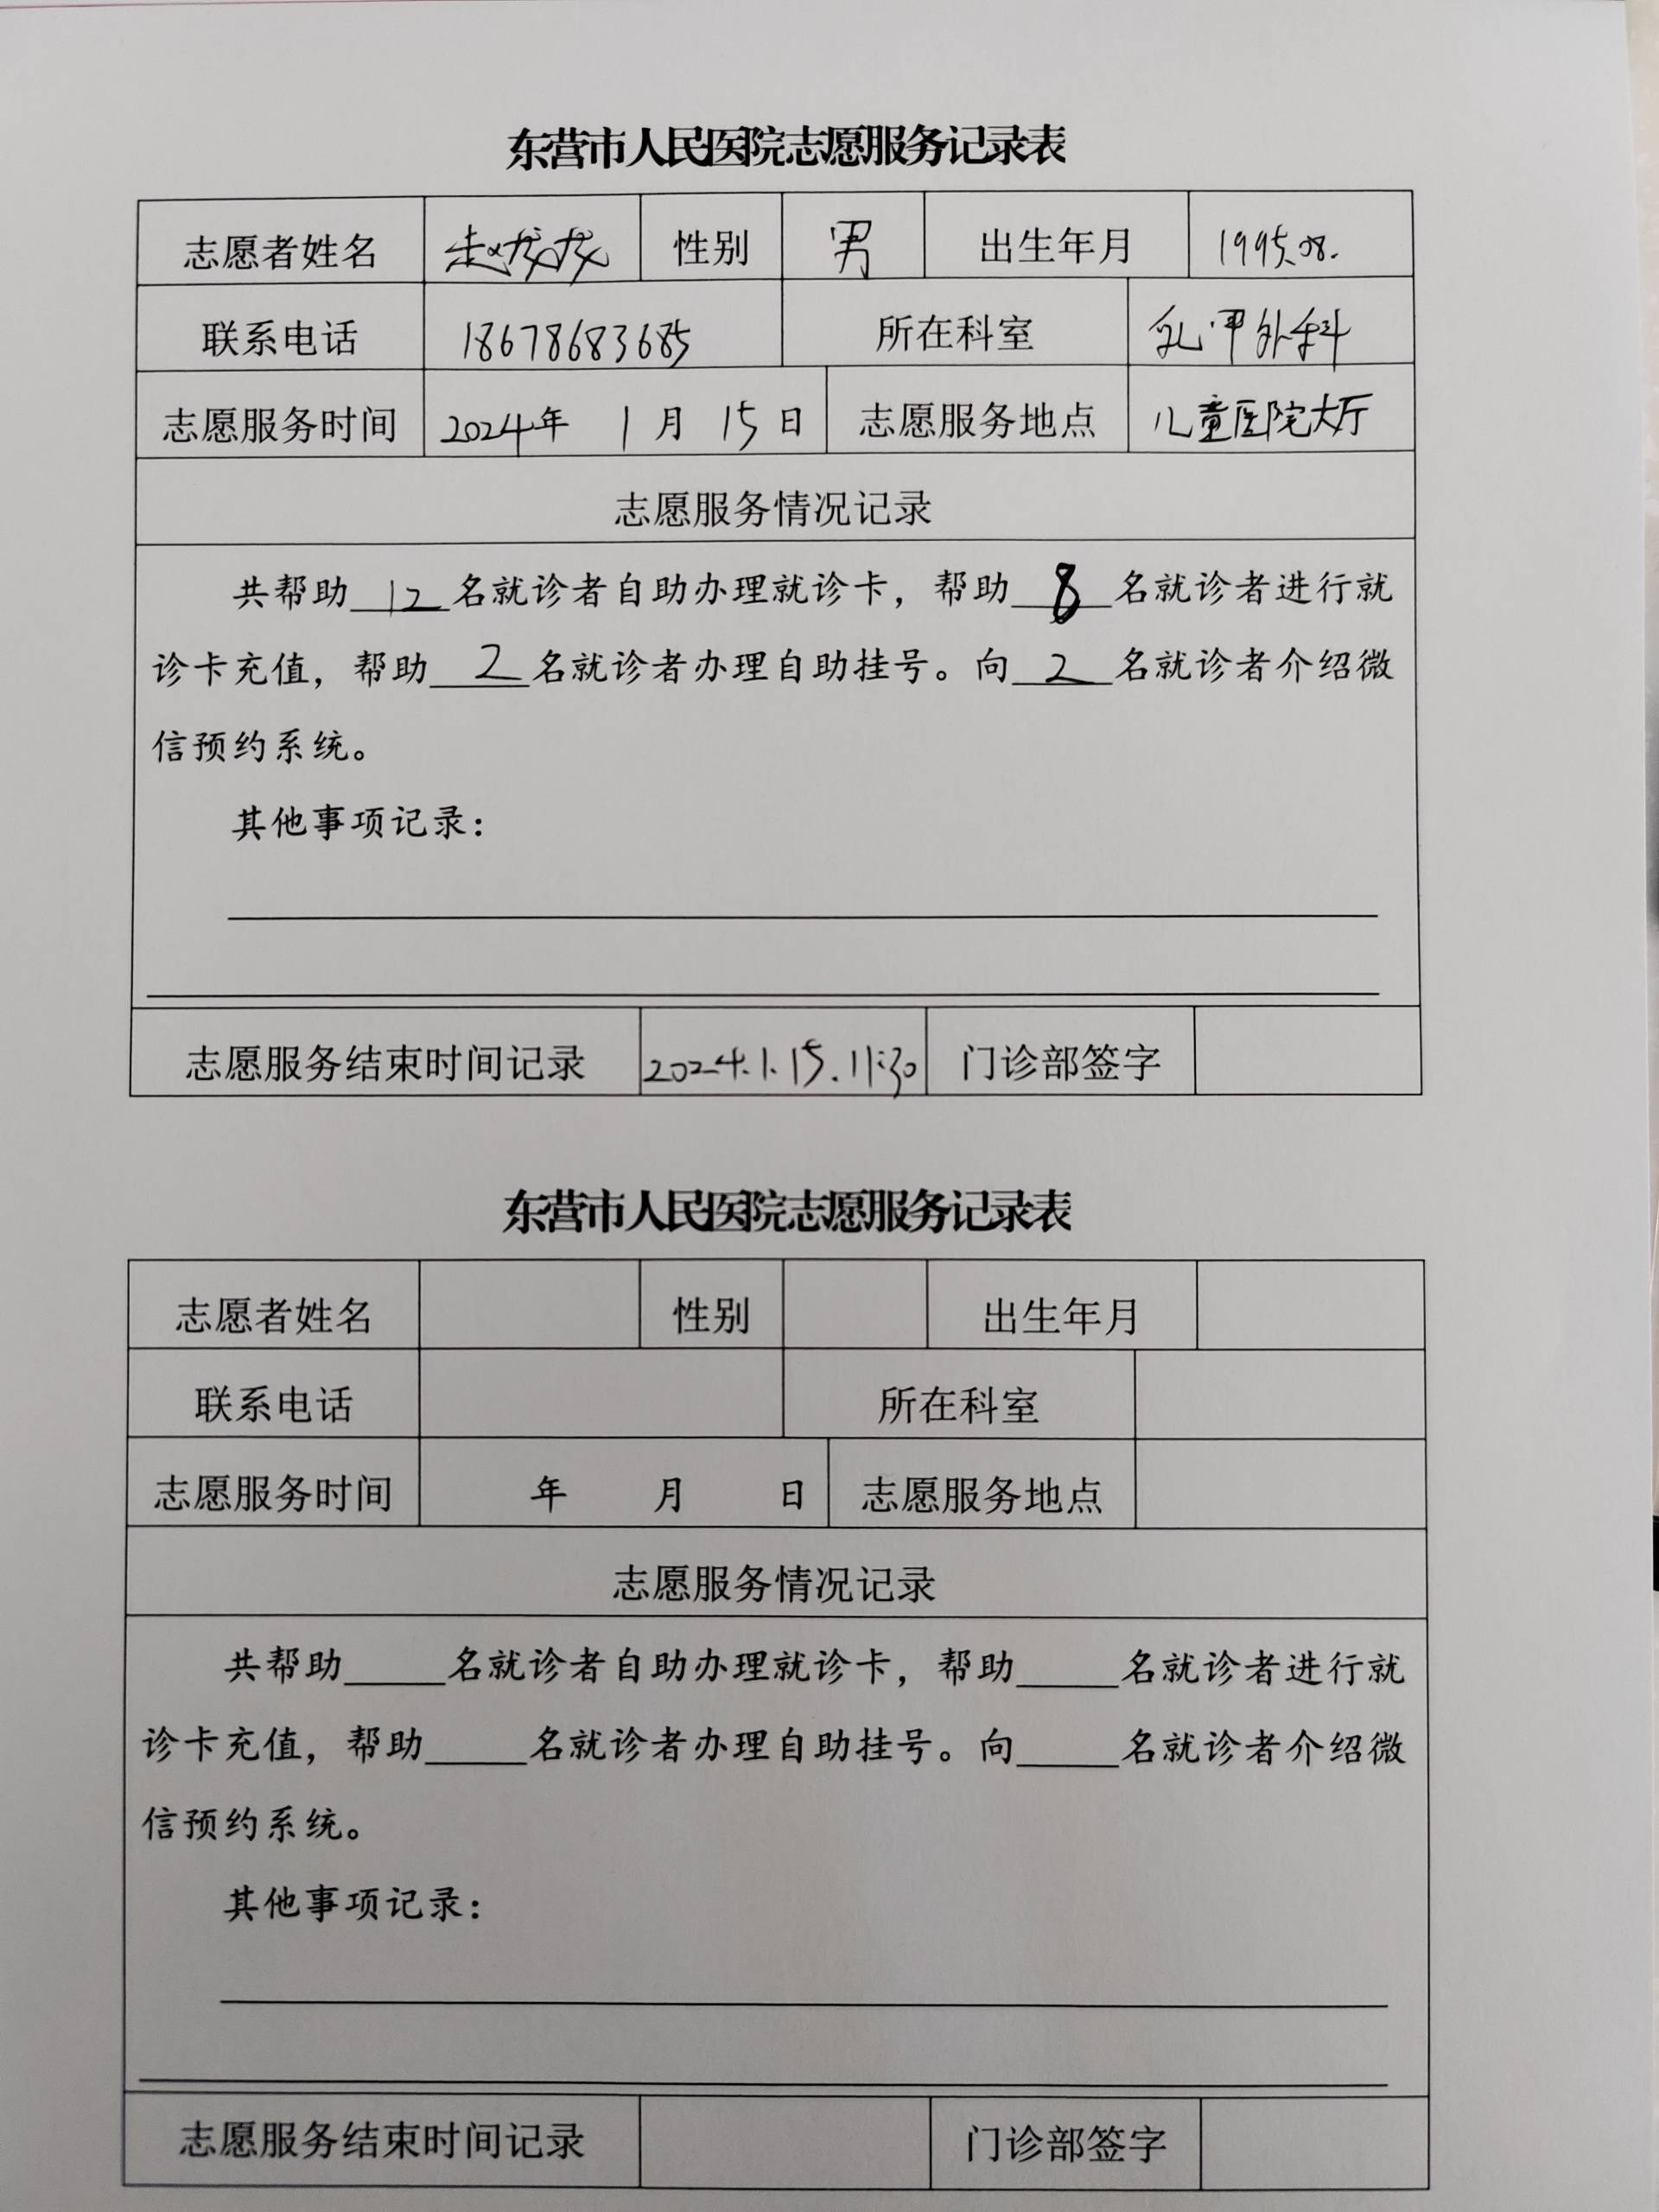 东营市人民医院志愿服务记录表
志愿者姓名 赵龙龙 性别 男 出生年月 1995.08.
联系电话 18678683685 所在科室 乳甲外科
志愿服务时间 2024年 1月 15日 志愿服务地点 儿童医院大厅
志愿服务情况记录
共帮助 12 名就诊者自助办理就诊卡，帮助 8 名就诊者进行就
诊卡充值，帮助 2 名就诊者办理自助挂号。向 2 名就诊者介绍微
信预约系统。
其他事项记录：
志愿服务结束时间记录 2024.1.15.11:30 门诊部签字
东营市人民医院志愿服务记录表
志愿者姓名 性别 出生年月
联系电话 所在科室
志愿服务时间 年 月 日 志愿服务地点
志愿服务情况记录
共帮助_____名就诊者自助办理就诊卡，帮助_____名就诊者进行就
诊卡充值，帮助_____名就诊者办理自助挂号。向_____名就诊者介绍微
信预约系统。
其他事项记录：
志愿服务结束时间记录 门诊部签字